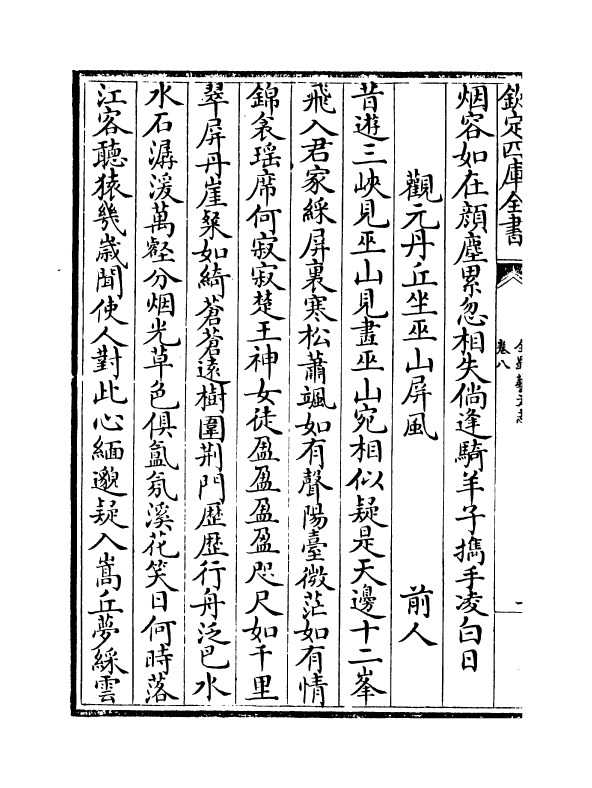 欽定四庫全書
全蜀藝文志
卷八
烟容如在顔塵累忽相失倘逢騎羊子携手凌白日
觀元丹丘坐巫山屏風　前人
昔遊三峽見巫山見畫巫山宛相似疑是天邊十二峯
飛入君家綵屏裏寒松蕭颯如有聲陽臺微茫如有情
錦衾瑶席何寂寂楚王神女徒盈盈盈盈咫尺如千里
翠屏丹崖粲如綺蒼蒼遠樹圍荆門歴歴行舟泛巴水
水石潺湲萬壑分烟光草色俱氳氛溪花笑日何時落
江客聽猿幾歲聞使人對此心緬邈疑入嵩丘夢綵雲